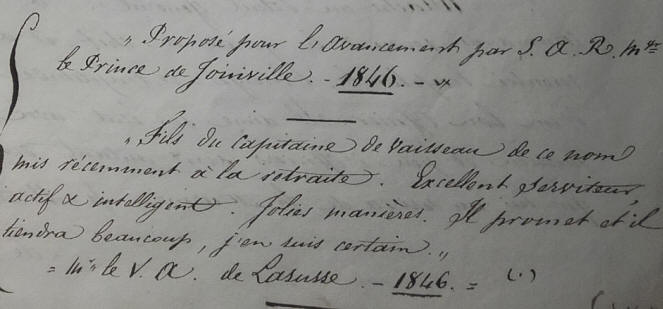 " Proposé pour l'avancement par S. A. R. Mgr
le Prince de Joinville. - 1846. - "
" Fils du capitaine de vaisseau de ce nom
mis récemment à la retraite. Excellent serviteur,
actif & intelligent. Jolies manières. Il promet et il
tiendra beaucoup, j'en suis certain. "
= Mr le V. A. de Lasusse. - 1846. = (.)